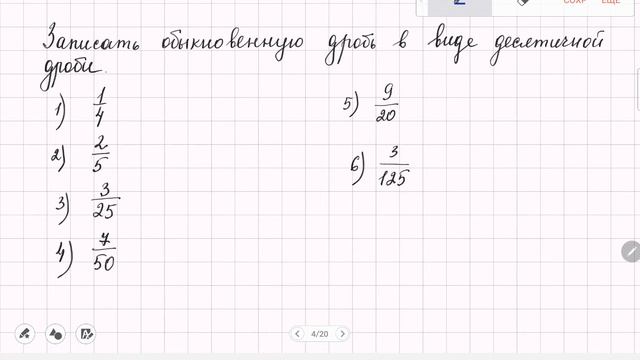 Записать обыкновенную дробь в виде десятичной
дроби.
1) 1/4
2) 2/5
3) 3/25
4) 7/50
5) 9/20
6) 3/125
4/20